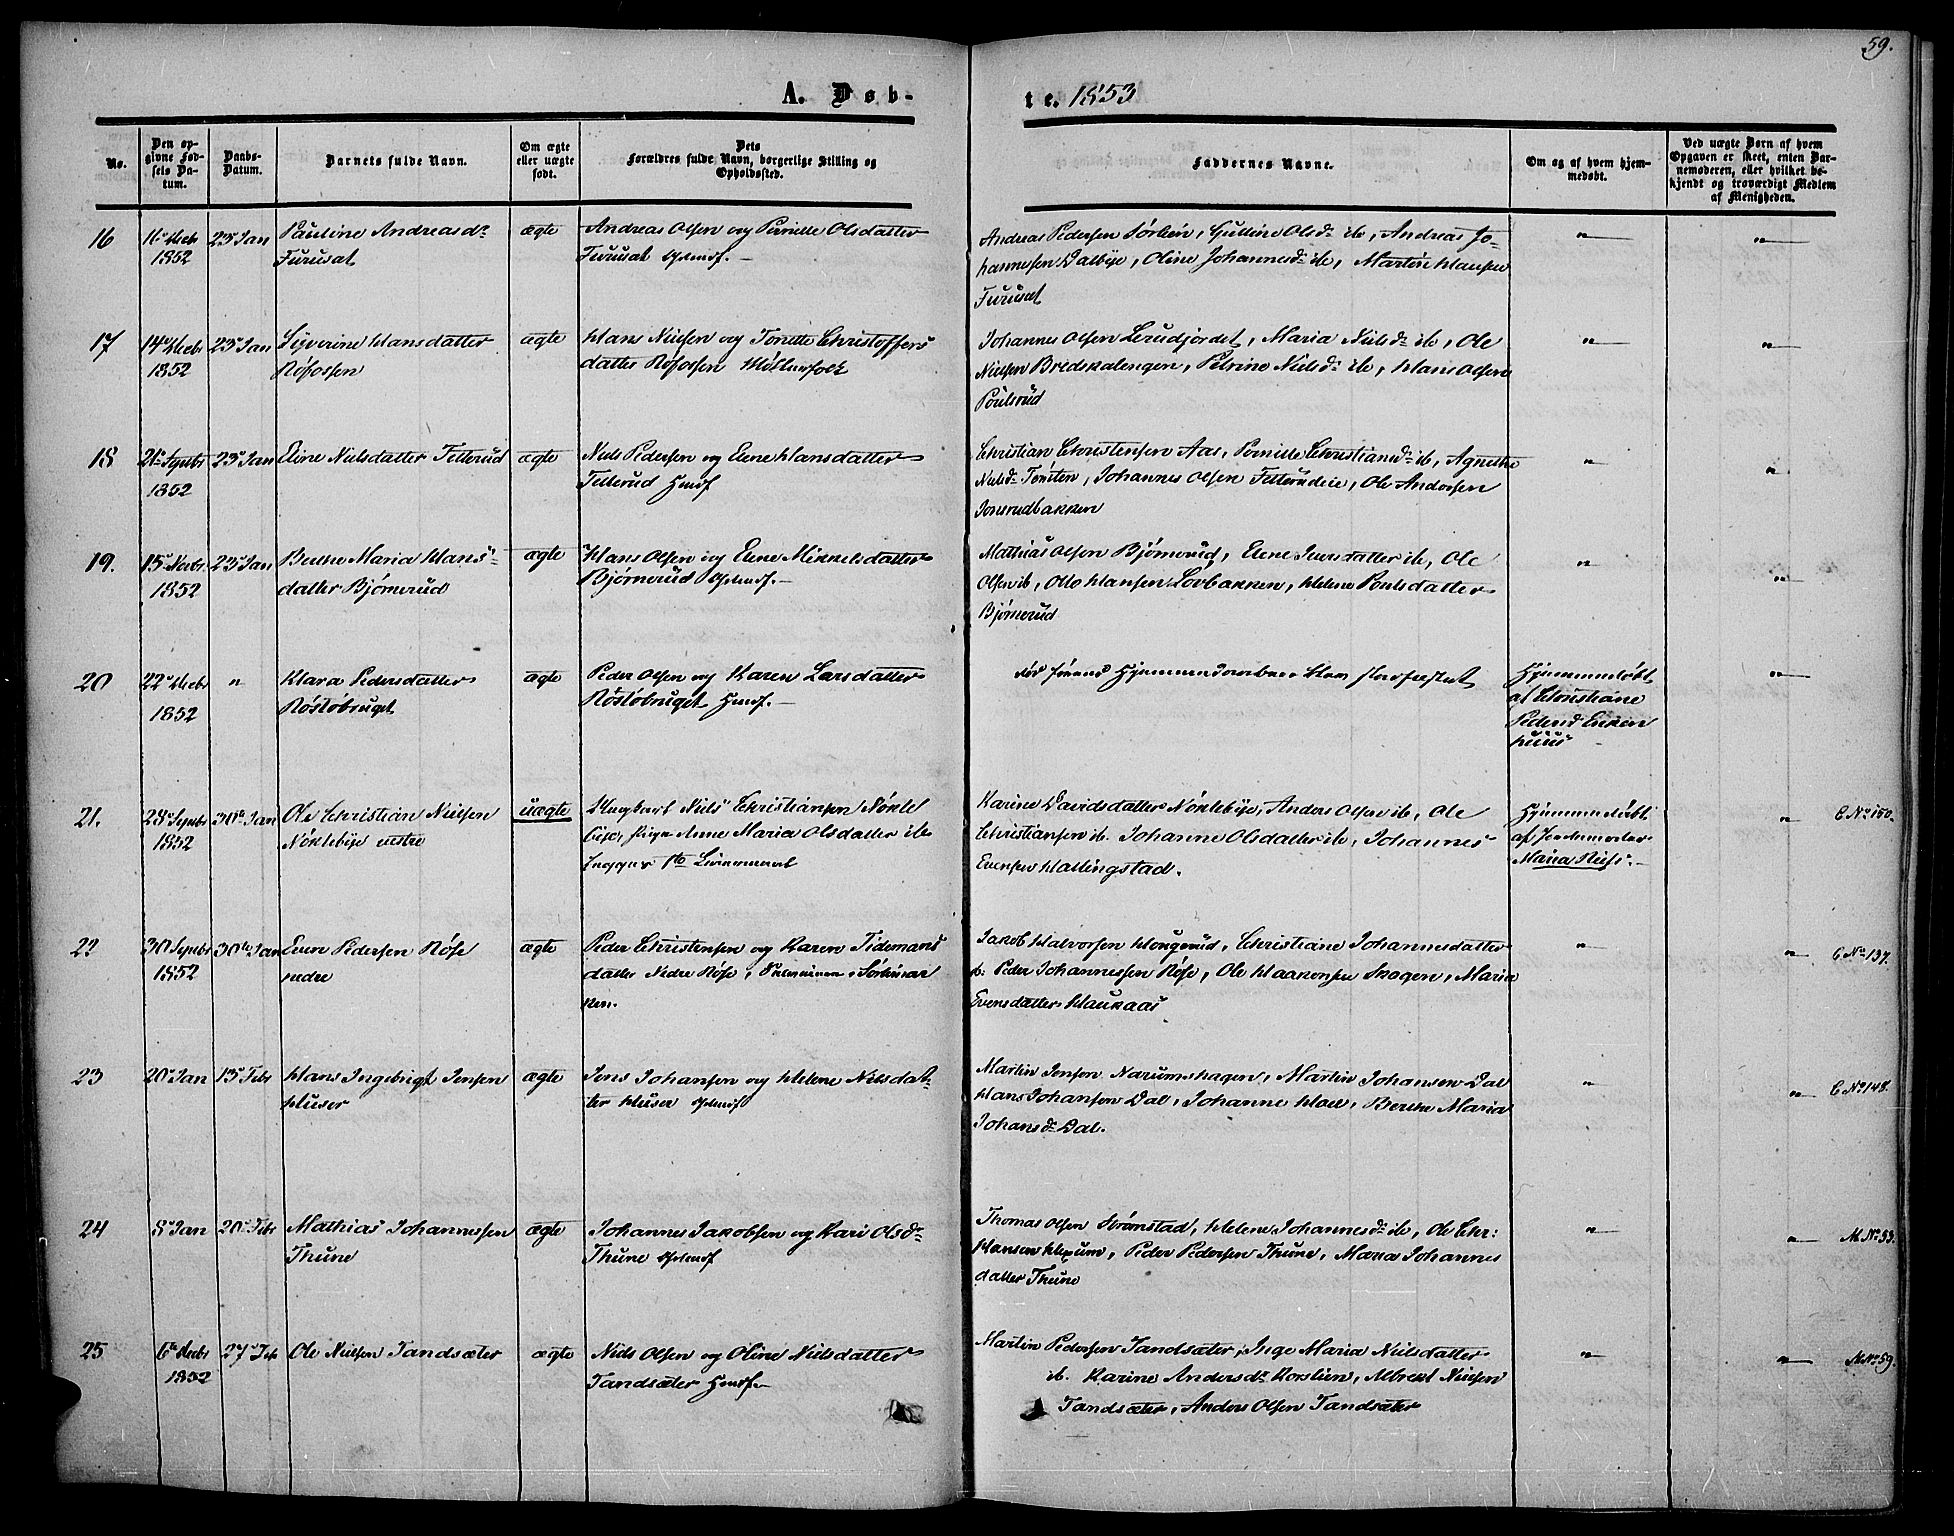 59.
A. Døb-
te. 1853
No.
Den op-
givne Fød-
sels Da-
tum.
Daabs-
Datum.
Barnets fulde Navn.
Om ægte
eller uægte
født.
Dets
Forældres fulde Navn, borgerlige Stilling og
Opholdssted.
Faddernes Navne.
Om og af hvem hjem-
medøbt.
Ved uægte Børn af hvem
Opgaven er skeet, enten Bar-
nemoderen, eller hvilket be-
kjendt og troværdigt Medlem
af Menigheden.
16
1852
23 Jan
Pauline Andreasdr
Furusat
ægte
Andreas Olsen og Pernille Olsdatter
Furusat
Andreas Pedersen Sørlien, Gulline Olsdr ib, Andreas Jo-
hannesen Dalbye, Oline Johannesdr ib, Martin Hansen
Furusat
17
14
1852
23 Jan
Syverine Hansdatter
Røfossen
ægte
Hans Nielsen og Torette Christoffers
datter Røfossen Møllerfolk
Johannes Olsen Lerudjordet, Maria Nielsdr ib, Ole
Nielsen Bredskalengen, Petrine Nielsdr ib, Hans Olsen
Poulsrud
18
21 Septbr
1852
23 Jan
Eline Nielsdatter Fetterud
ægte
Niels Pedersen og Elene Hansdatter
Fetterud Huusf
Christian Christensen Aas, Pernille Christiansdr ib, Agnethe
Nielsdr Tømten, Johannes Olsen Fetterudeie, Ole Andersen
Jonsrudbakken
19.
15 Novbr
1852
23 Jan
Berthe Maria Hans-
datter Bjørnerud
ægte
Hans Olsen og Elene Mikkelsdatter
Bjørnerud
Mathias Olsen Bjørnerud, Elene Iversdatter ib, Ole
Olsen ib, Otto Hansen Lovbakken, Helene Poulsdatter
Bjørnerud
20
22
1852
Klara Pedersdatter
Røstøbruget
ægte
Peder Olsen og Karen Larsdatter
Røstøbruget Huusf.
død førend Hjemmedaaben blev stadfæstet
Hjemmedøbt
af Christiane
Pedersdr
huus
21.
28 Septbr
1852
30te Jan
Ole Christian Nielsen
Nøklebye østre
uægte
Ungkarl Niels Christiansen Nøkle
bye, Pige Anne Maria Olsdatter ib
begges 1te Leiermaal
Karine Davidsdatter Nøklebye, Anders Olsen ib, Ole
Christiansen ib. Johanne Olsdatter ib, Johannes
Evensen Hallingstad.
Hjemmedøbt
af Jordemoder
Maria Riis.
C No 150.
22
30 Septbr
1852
30te Jan
Even Pedersen Røise
nedre
ægte
Peder Christensen og Karen Tidemands
datter Nedre Røise,
ken.
Jakob Halvorsen Hougsrud, Christiane Johannesdatter
ib. Peder Johannessen Røise, Ole Haakonsen Skogen, Maria
Evensdatter Haukaas
C No 137.
23
20 Jan
13 Febr
Hans Ingebrigt Jensen
Huser
ægte
Jens Johansen og Helene Nielsdat-
ter Huser
Martin Jensen Narumshagen, Martin Johansen Dal
Hans Johansen Dal, Johanne Hoel, Berthe Maria
Johansdr Dal.
C No 148.
24
8 Jan
20 Febr
Mathias Johannessen
Thune
ægte
Johannes Jakobsen og Kari Olsdr
Thune
Thomas Olsen Strømstad, Helene Johannesdr ib, Ole Chr:
Hansen Hexum, Peder Pedersen Thune, Maria Johannes
datter Thune
M No 53.
25
6te
1852
27 Feb
Ole Nielsen Sandsæter
ægte
Niels Olsen og Oline Nielsdatter
Sandsæter Huusf.
Martin Pedersen Sandsæter, Inge Maria Nielsdatter
ib. Karine Andersdr Korslien, Albrekt Nielsen
Sandsæter, Anders Olsen Sandsæter
M No 59.